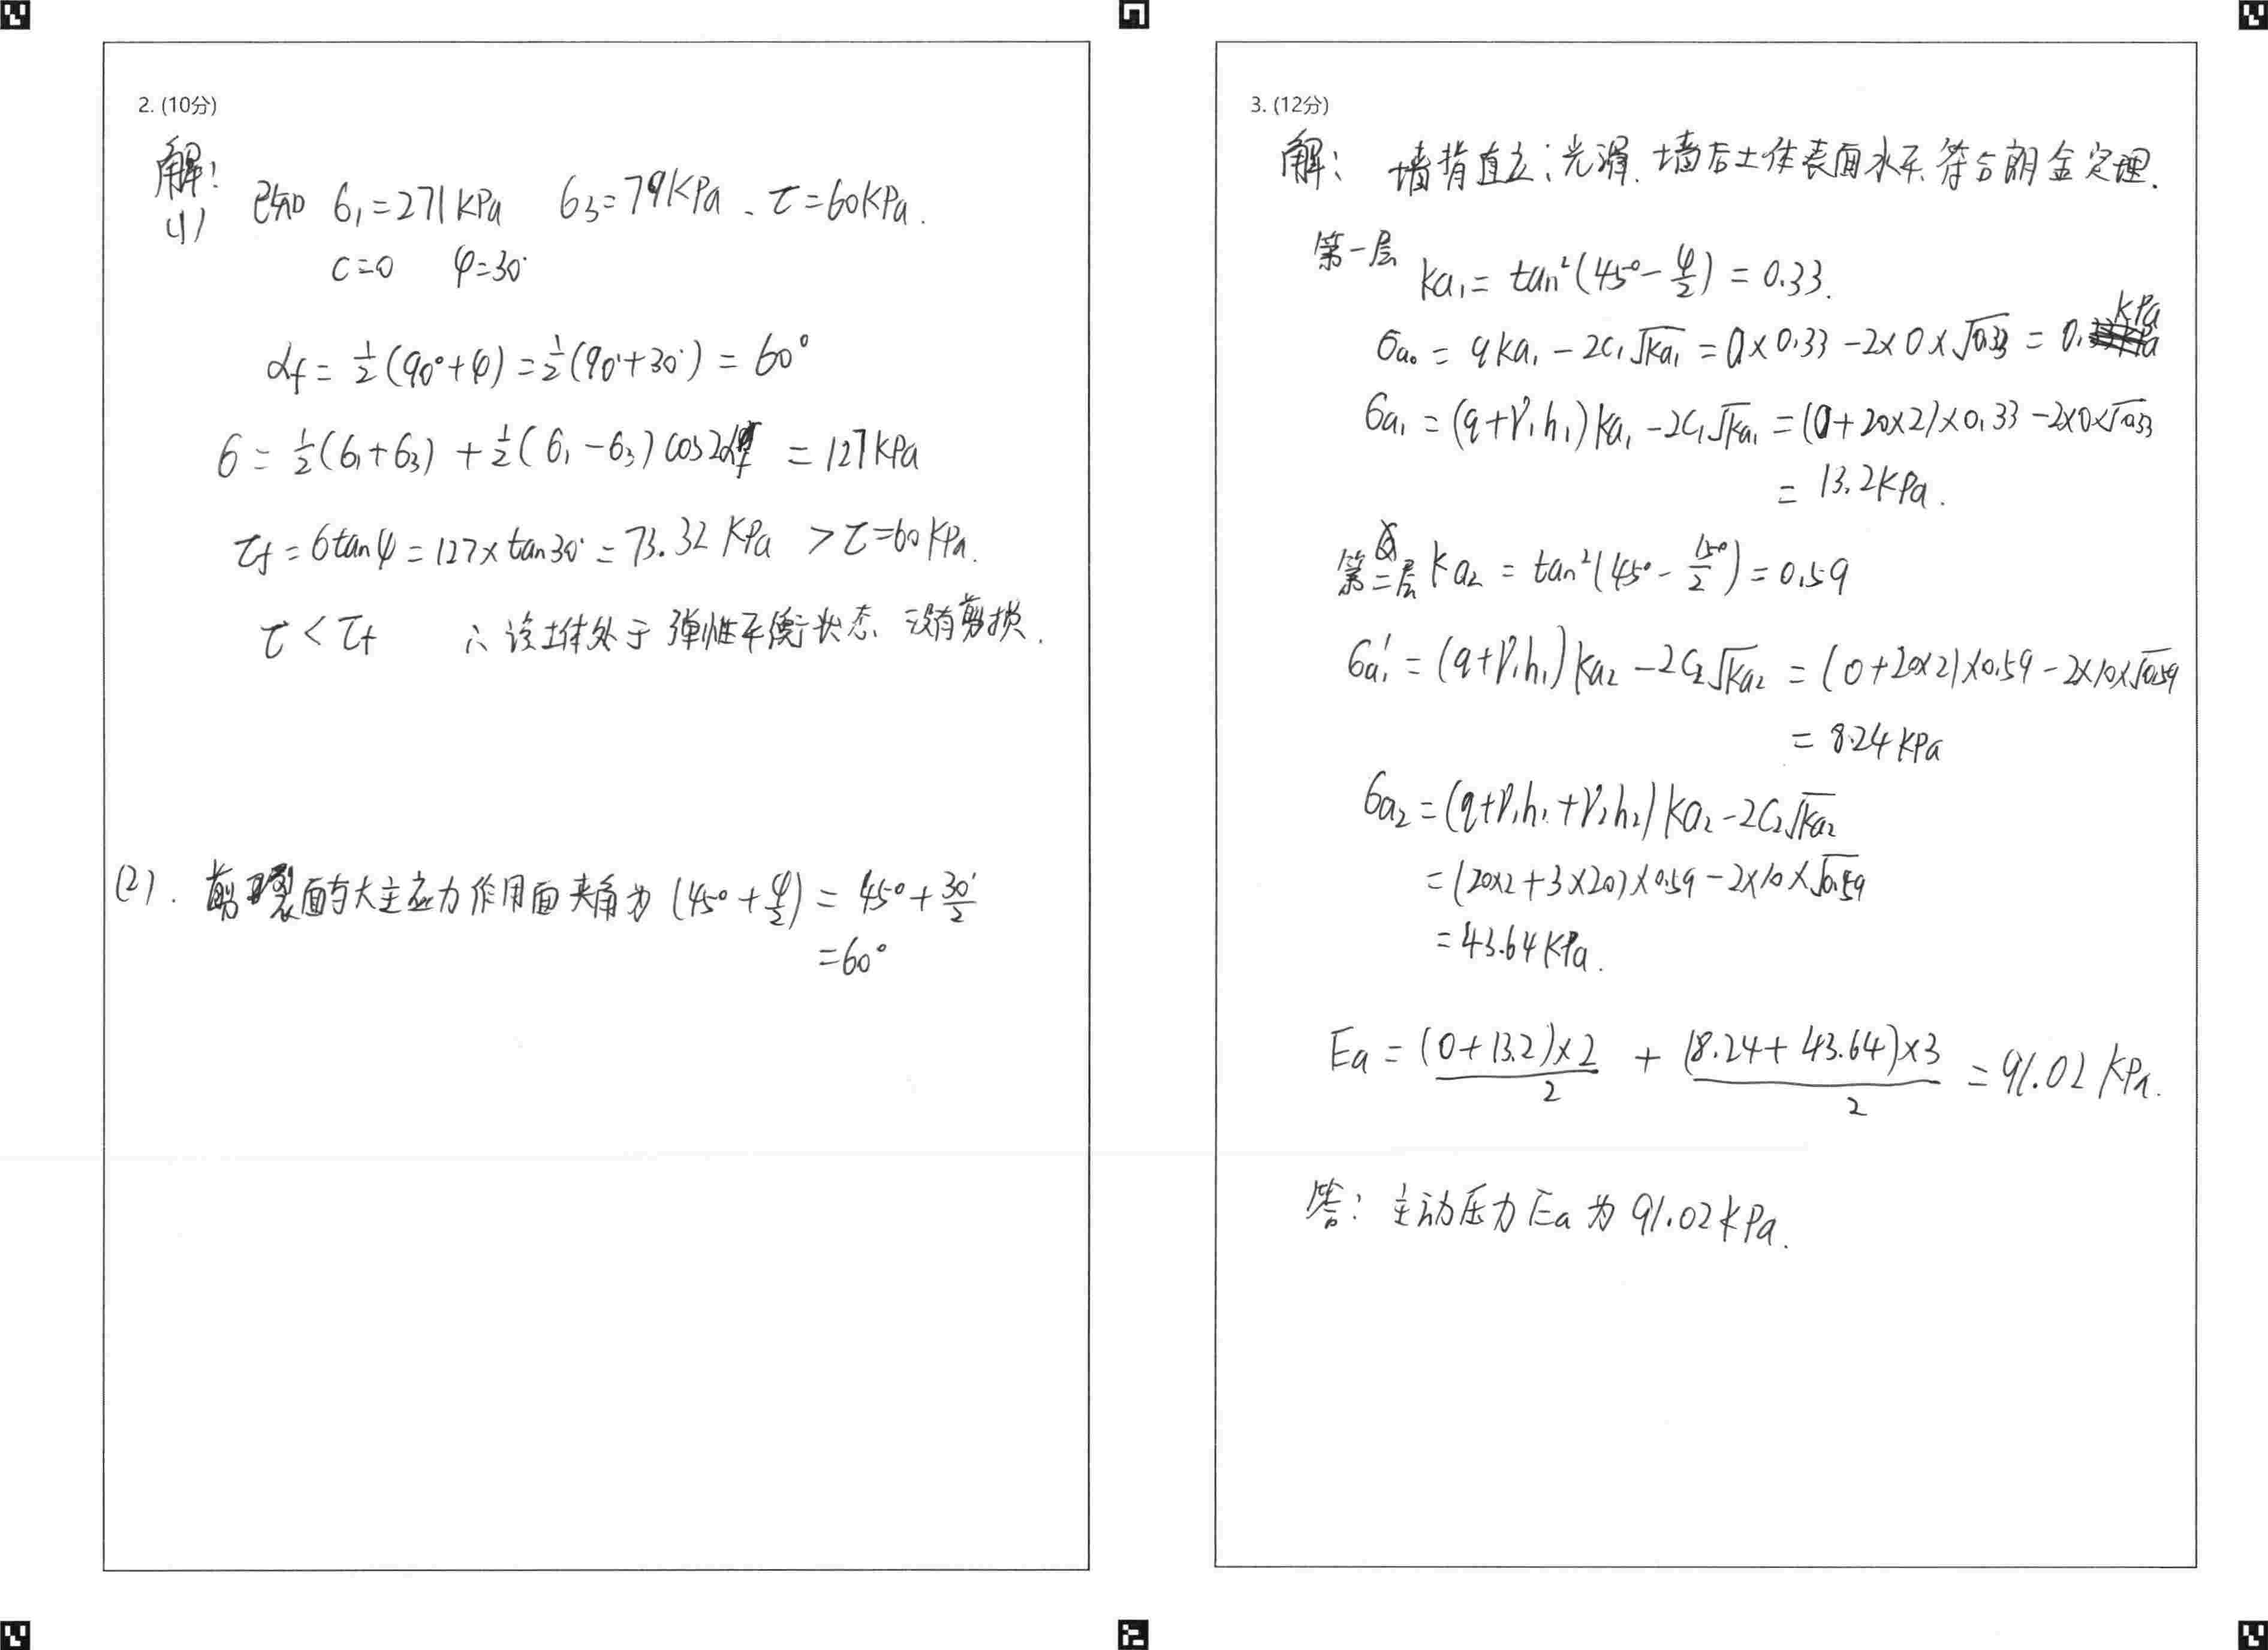 2. (10分)
解:
(1) 已知 σ₁=271kPa σ₃=79kPa、τ=60kPa.
c=0 φ=30°
αf = 1/2(90°+φ)=1/2(90°+30°) = 60°
σ = 1/2(σ₁+σ₃) + 1/2(σ₁-σ₃)cos2αf = 127kPa
τf = σtanφ = 127×tan30° = 73.32 kPa > τ=60kPa.
τ < τf ∴ 该土体处于弹性平衡状态. 没有剪损.
(2). 剪裂面与大主应力作用面夹角为 (45°+φ/2) = 45°+30°/2
=60°
3. (12分)
解: 墙背直立;光滑. 墙后土体表面水平.符合朗金定理.
第一层 ka₁= tan²(45°-φ/2) = 0.33.
σa₀ = qka₁ - 2c₁√ka₁ = 0×0.33 -2×0×√0.33 = 0. kPa
σa₁ = (q+γ₁h₁)ka₁ -2c₁√ka₁ = (0+20×2)×0.33 -2×0×√0.33
= 13.2kPa.
第二层 ka₂ = tan²(45°-15°/2)=0.59
σa₁' = (q+γ₁h₁)ka₂ -2c₂√ka₂ = (0+20×2)×0.59 -2×10×√0.59
= 8.24kPa
σa₂ = (q+γ₁h₁+γ₂h₂)ka₂-2c₂√ka₂
= (20×2+3×20)×0.59-2×10×√0.59
= 43.64kPa.
Ea = (0+13.2)×2/2 + (8.24+43.64)×3/2 = 91.02 kPa.
答: 主动压力Ea为91.02kPa.